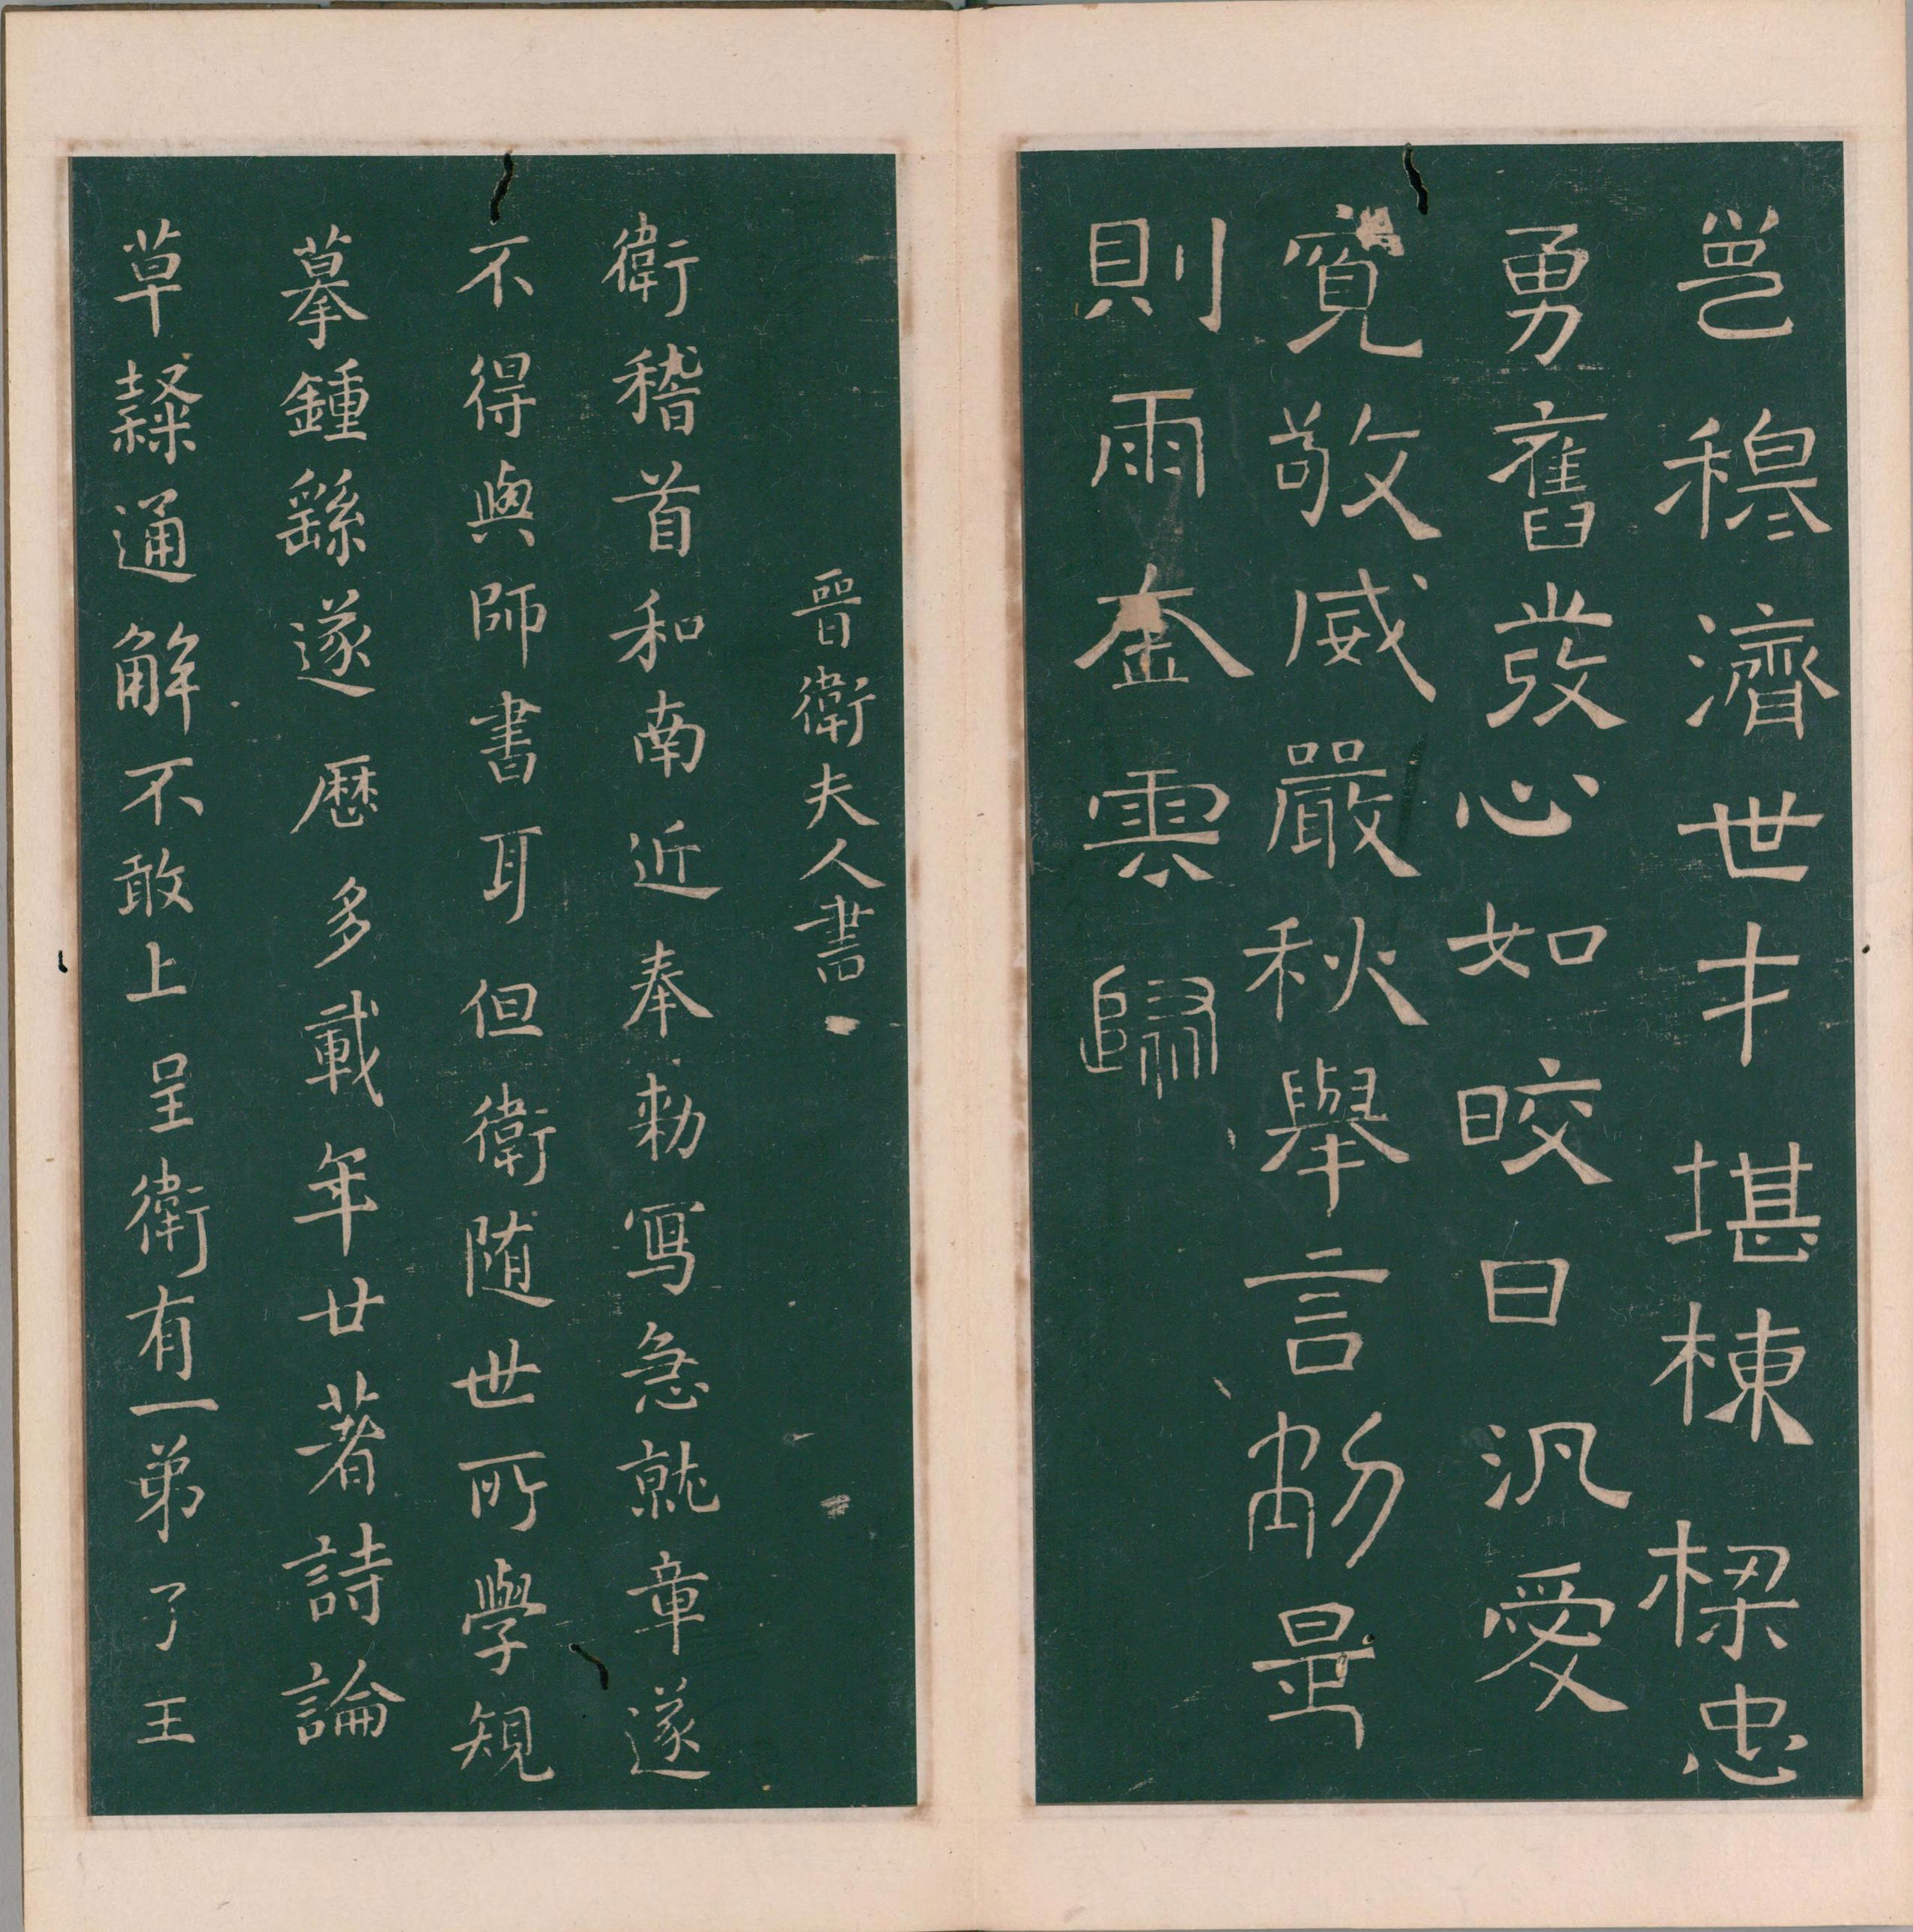 邕穆濟世才堪棟樑忠
勇奮發心如皎日汎愛
寬敬威嚴秋舉言勛量
則雨金雲歸
晉衛夫人書
衛稽首和南近奉勅寫急就章遂
不得與師書耳但衛隨世所學規
摹鍾繇遂歷多載年廿著詩論
草隸通解不敢上呈衛有一弟子王